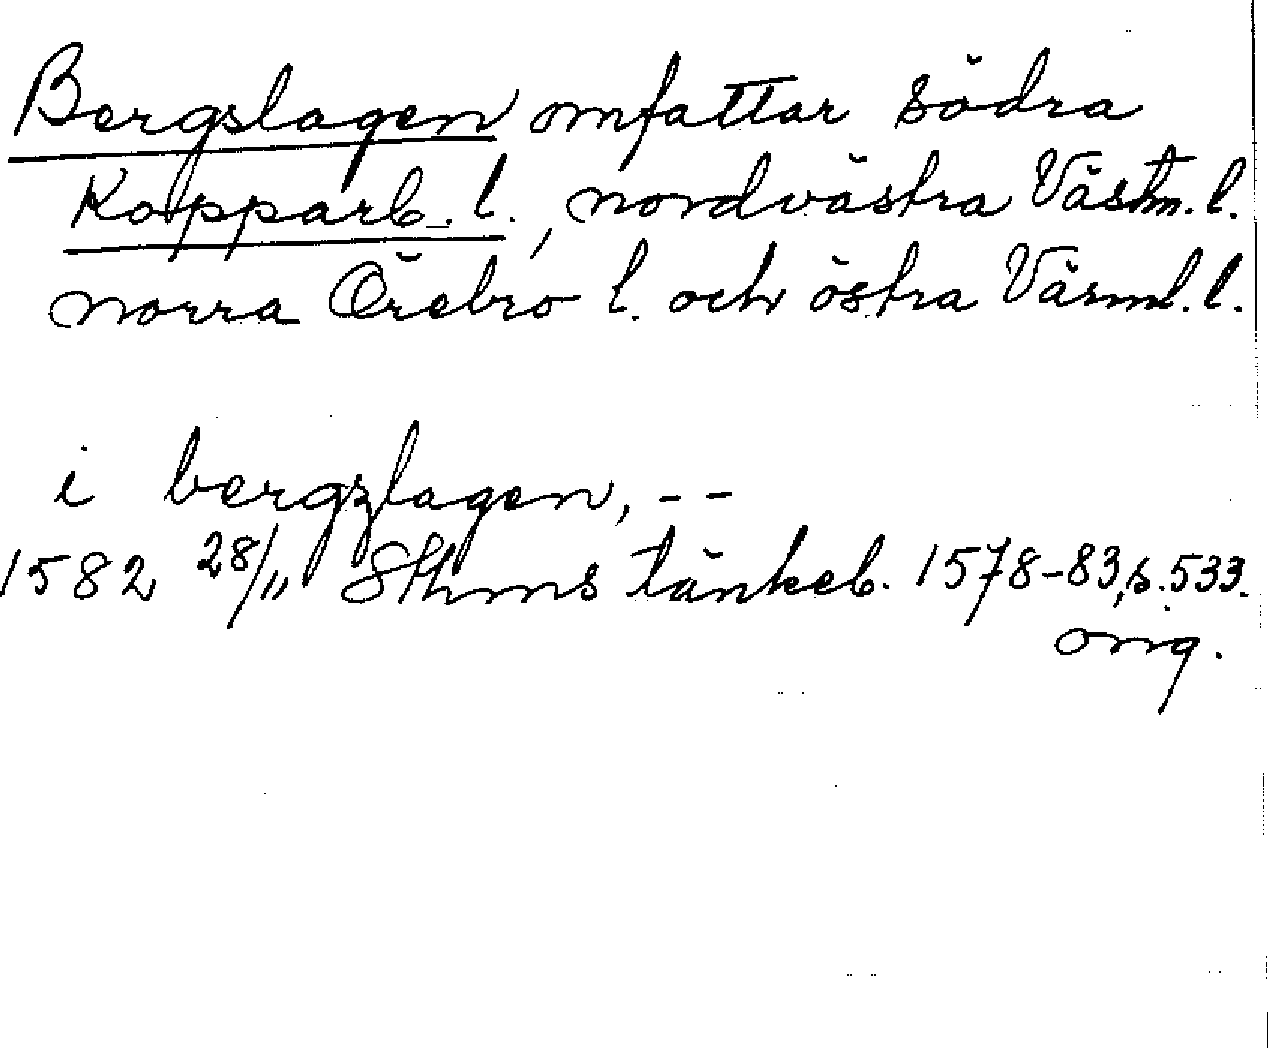 Bergslagen omfattar södra
Kopparb. l., nordvästra Västm. l.
norra Örebro l. och östra Värml. l.
i bergzlagen, --
1582 28/11 Sthms tänkeb. 1578-83, s. 533.
orig.